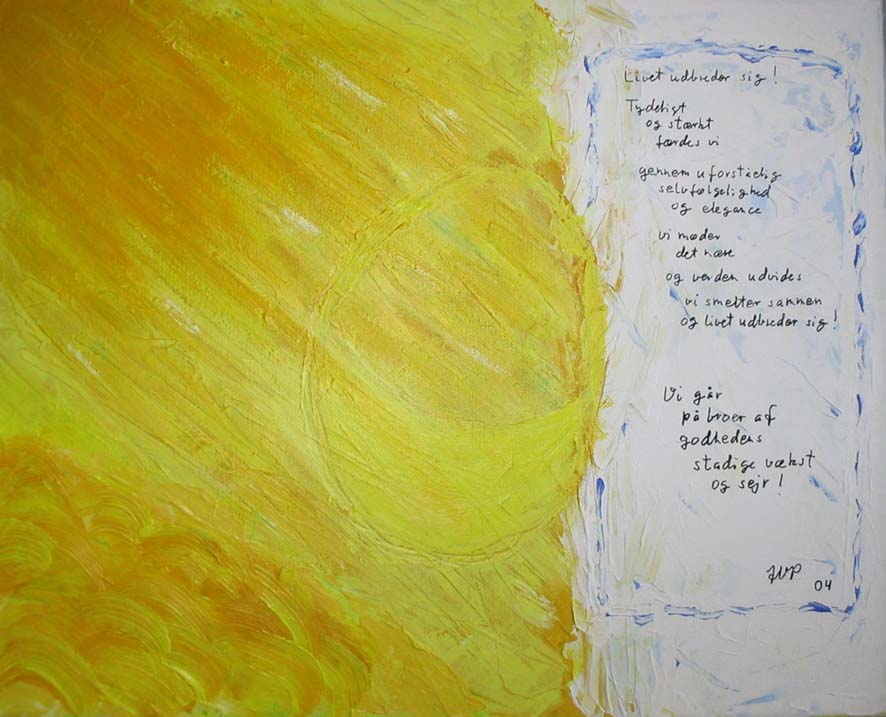 Livet udbreder sig!
Tydeligt
og stærkt
færdes vi
gennem uforståelig
selvfølgelighed
og elegance
vi møder
det nære
og verden udvides
vi smelter sammen
og livet udbreder sig!
Vi går
på broer af
godhedens
stadige vækst
og sejr!
JVP
04